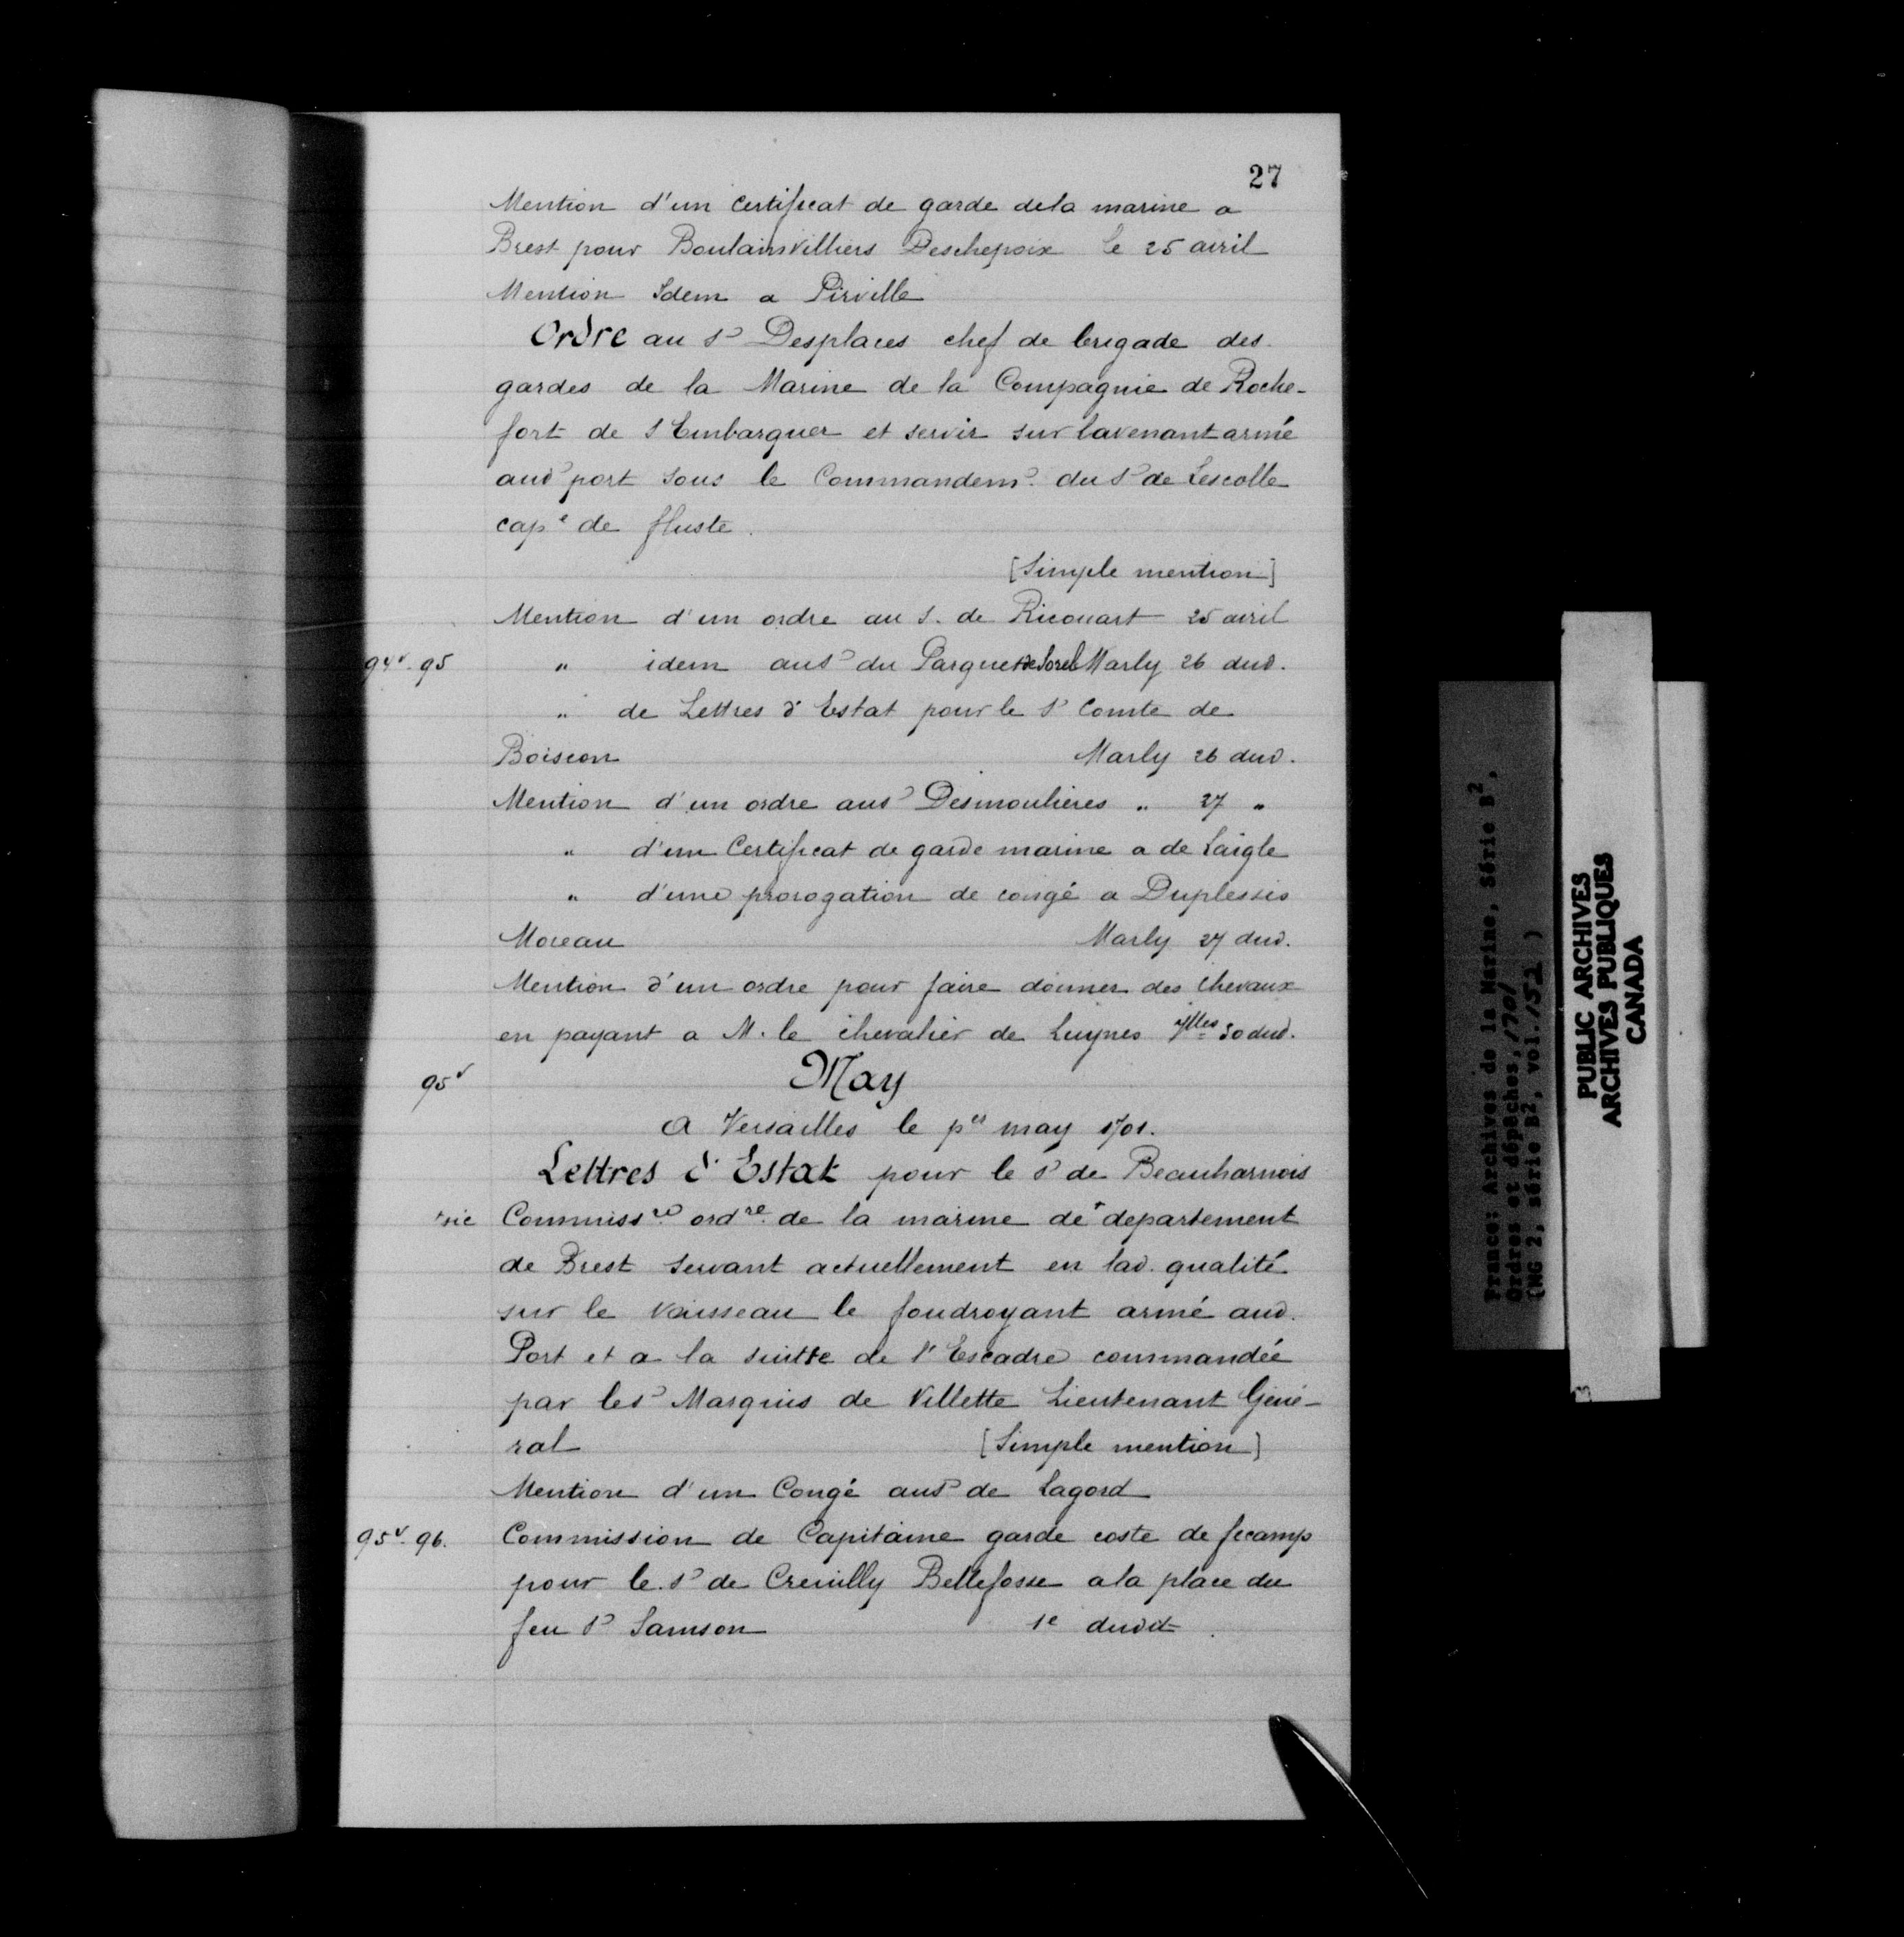 27
Mention d'un certificat de garde dela marine a
Brest pour Boulainvilliers Deschepoix le 25 avril
Mention Idem a Pirville
Ordre au Sr Desplaces chef de brigade des
gardes de la Marine de la Compagnie de Roche-
fort de s'Embarquer et servir sur lavenant armé
aud port sous le Commandemt. du Sr de Lescolle
cape de fluste.
[Simple mention]
Mention d'un ordre au S. de Ricouart 25 avril
94v. 95 " idem au Sr du Parquet de Sorel Marly 26 dud.
" de Lettres d'Estat pour le Sr Comte de
Boiseon Marly 26 dud.
Mention d'un ordre au Sr Desmoulieres " 27 "
" d'un Certificat de garde marine a de Laigle
" d'une prorogation de congé a Duplessis
Moreau Marly 27 dud.
Mention d'un ordre pour faire donner des chevaux
en payant a M. le chevalier de Luynes Vlles 30 dud.
95v May
A Versailles le per may 1701.
Lettres d'Estat pour le Sr de Beauharnois
+sic Commissre ordre de la marine de+ departement
de Brest servant actuellement en lad. qualité
sur le vaisseau le foudroyant armé aud.
Port et a la suitte de l'Escadre commandée
par le Sr Marquis de Villette Lieutenant Géné-
ral [Simple mention]
Mention d'un Congé au Sr de Lagord
95v. 96. Commission de Capitaine garde coste de fecamp
pour le Sr de Creuilly Bellefosse a la place du
feu Sr Samson 1e dudit.
France: Archives de la Marine, Série B2,
Ordres et dépêches, 1701
(MG 2, série B2, vol. 152 )
PUBLIC ARCHIVES
ARCHIVES PUBLIQUES
CANADA
3